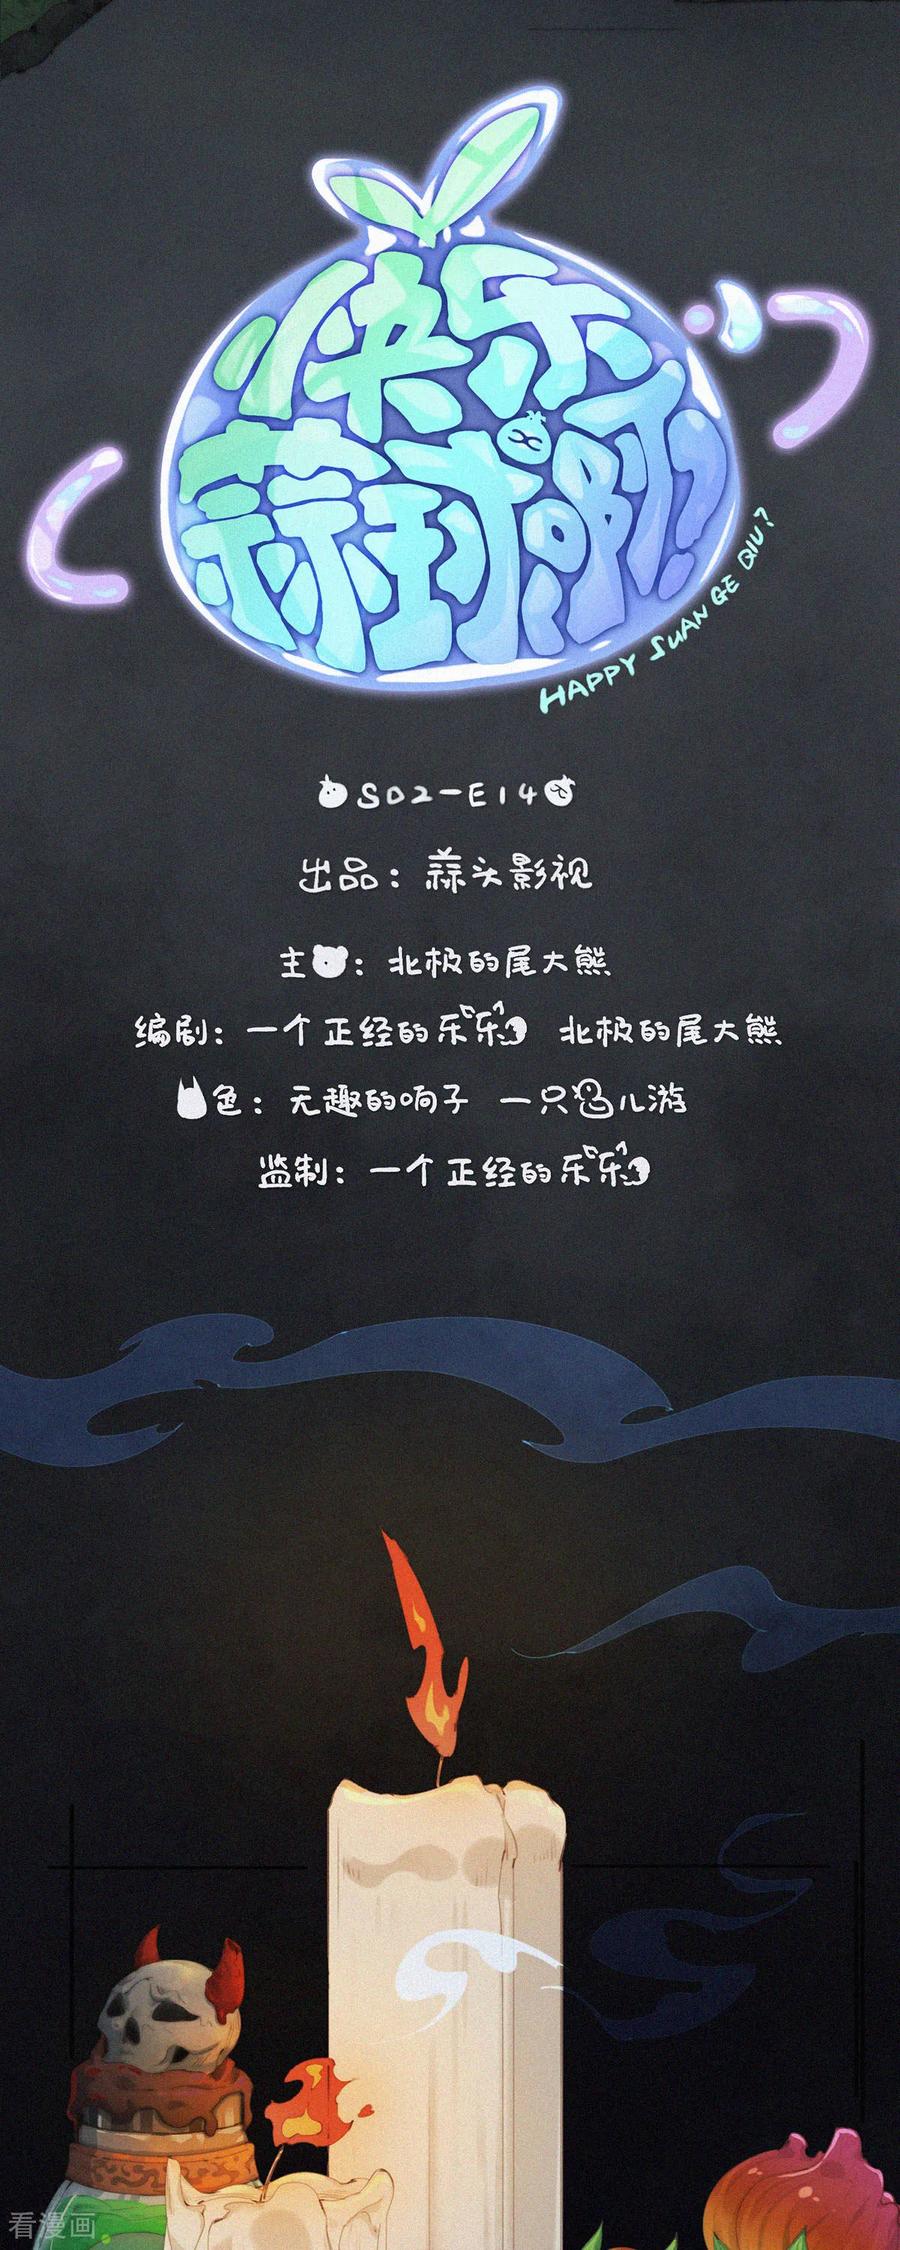 快乐
蒜球啊?
HAPPY SUAN GE QIU?
S02-E14
出品：蒜头影视
主：北极的尾大熊
编剧：一个正经的乐乐 北极的尾大熊
色：无趣的响子 一只儿游
监制：一个正经的乐乐
看漫画